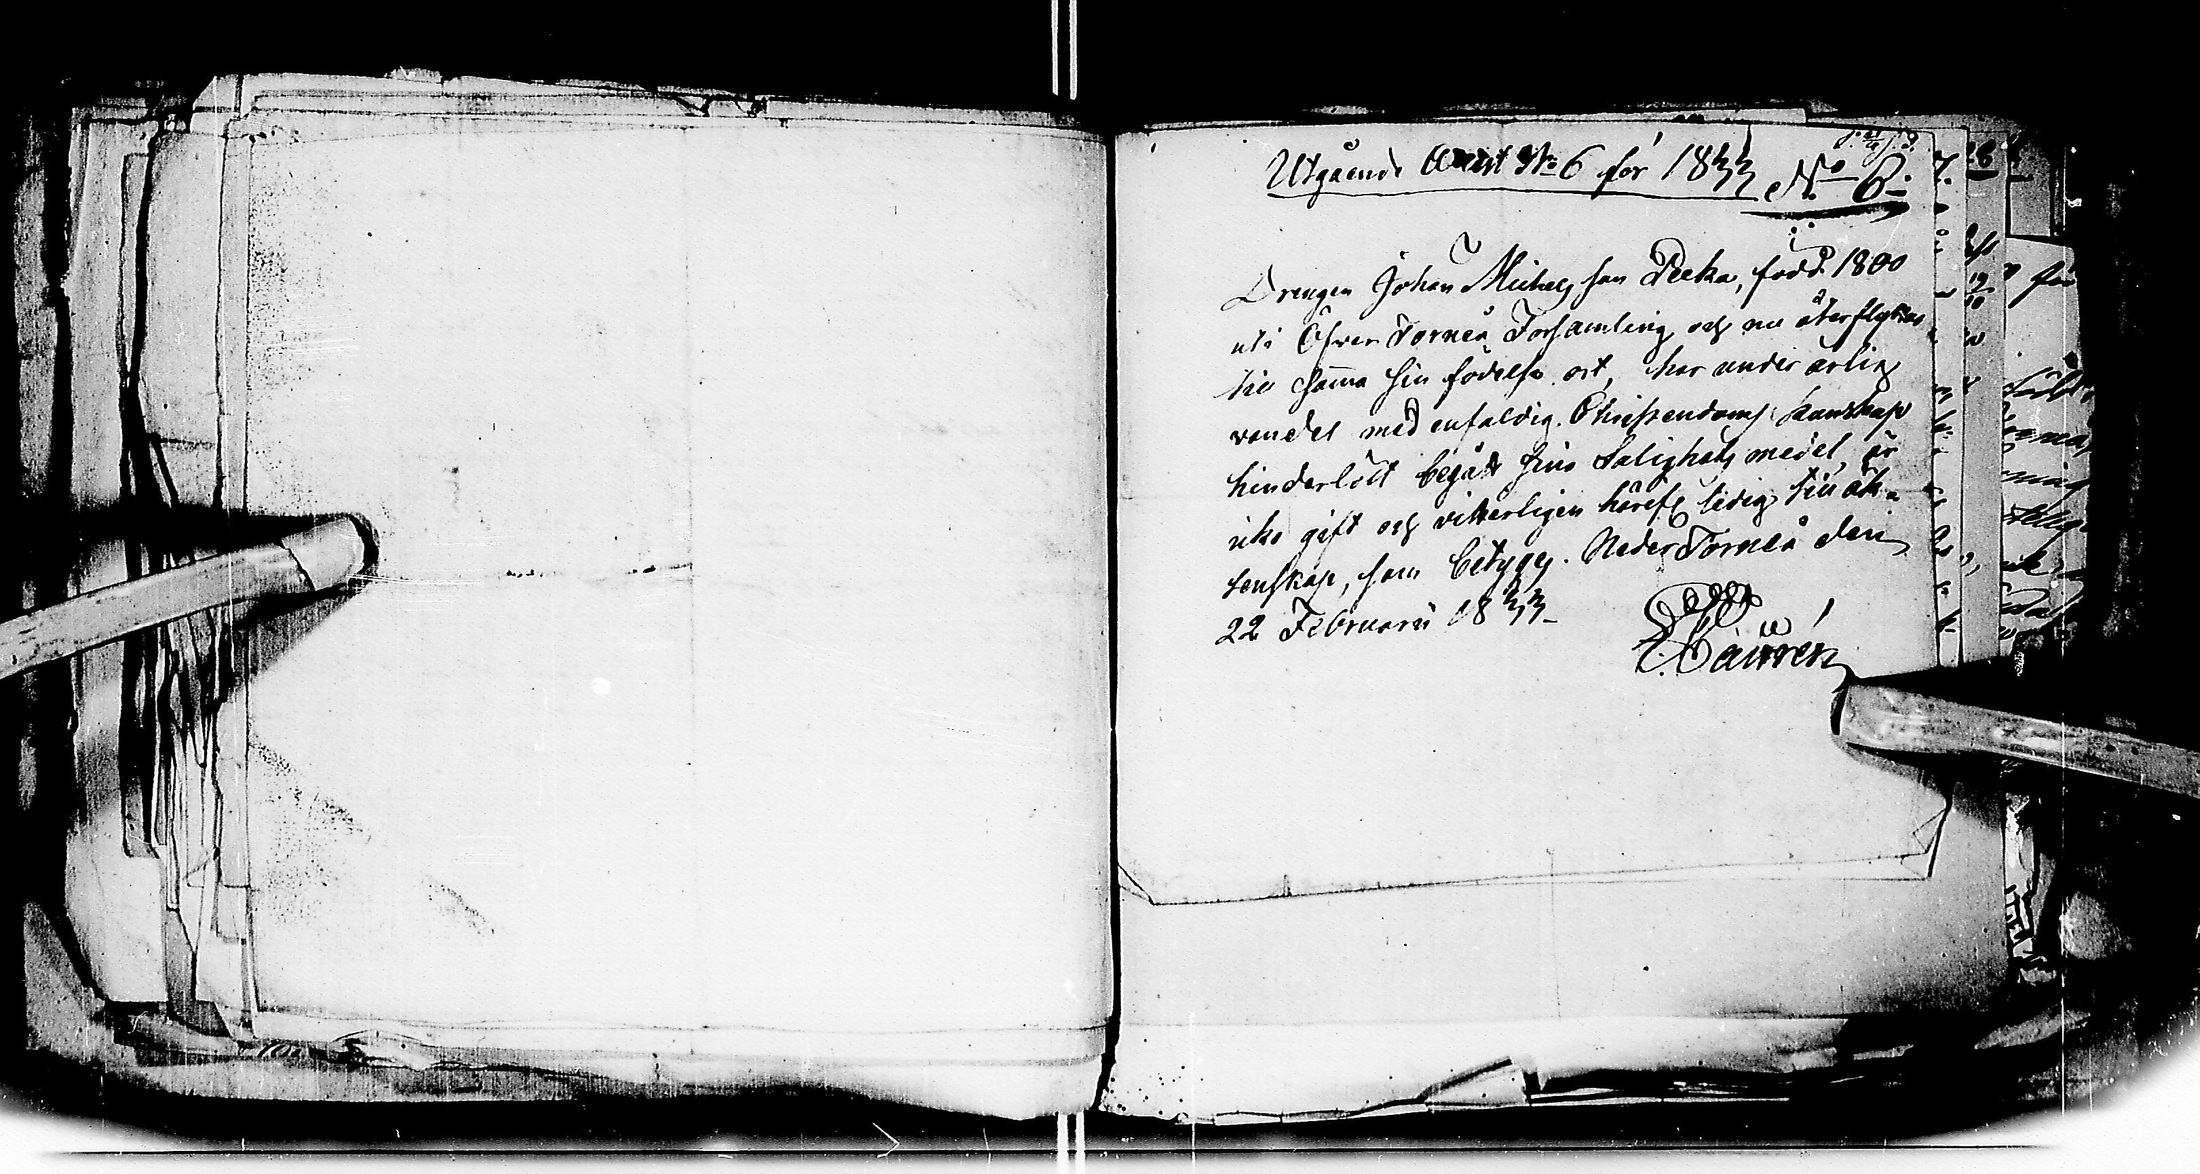 Utgående Attest No 6 för 1833 No 6.
Drengen Johan Michelsson Pecka, född 1800
uti Öfver Torneå Församling och nu återflyttar
till samma sin födelse ort, har under ärlig
vandel med enfaldig Christendoms kunskap
hinderlöst begått sine Salighets medel, är
icke gift och vitterligen härefter ledig till äk-
tenskap, som betygas. Neder Torneå den
22 Februarii 1833